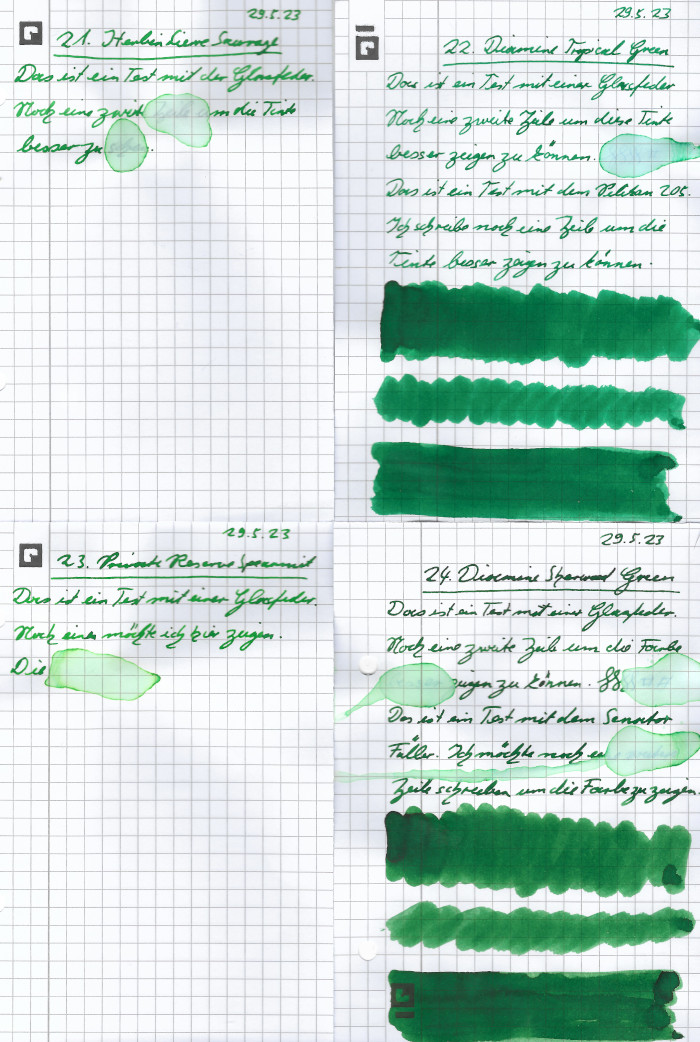 29.5.23
21. Herbin Lierre Sauvage
Das ist ein Test mit der Glasfeder.
Noch eine zweite Zeile um die Tinte
besser zu
29.5.23
22. Diamine Tropical Green
Das ist ein Test mit einer Glasfeder
Noch eine zweite Zeile um diese Tinte
besser zeigen zu können.
Das ist ein Test mit dem Pelikan 205.
Ich schreibe noch eine Zeile um die
Tinte besser zeigen zu können.
29.5.23
23. Private Reserve Spearmint
Das ist ein Test mit einer Glasfeder.
Noch einen möchte ich hier zeigen.
Die
29.5.23
24. Diamine Sherwood Green
Das ist ein Test mit einer Glasfeder.
Noch eine zweite Zeile um die Farbe
zeigen zu können.
Das ist ein Test mit dem Senator
Füller. Ich möchte noch
Zeile schreiben um die Farbe zu zeigen.